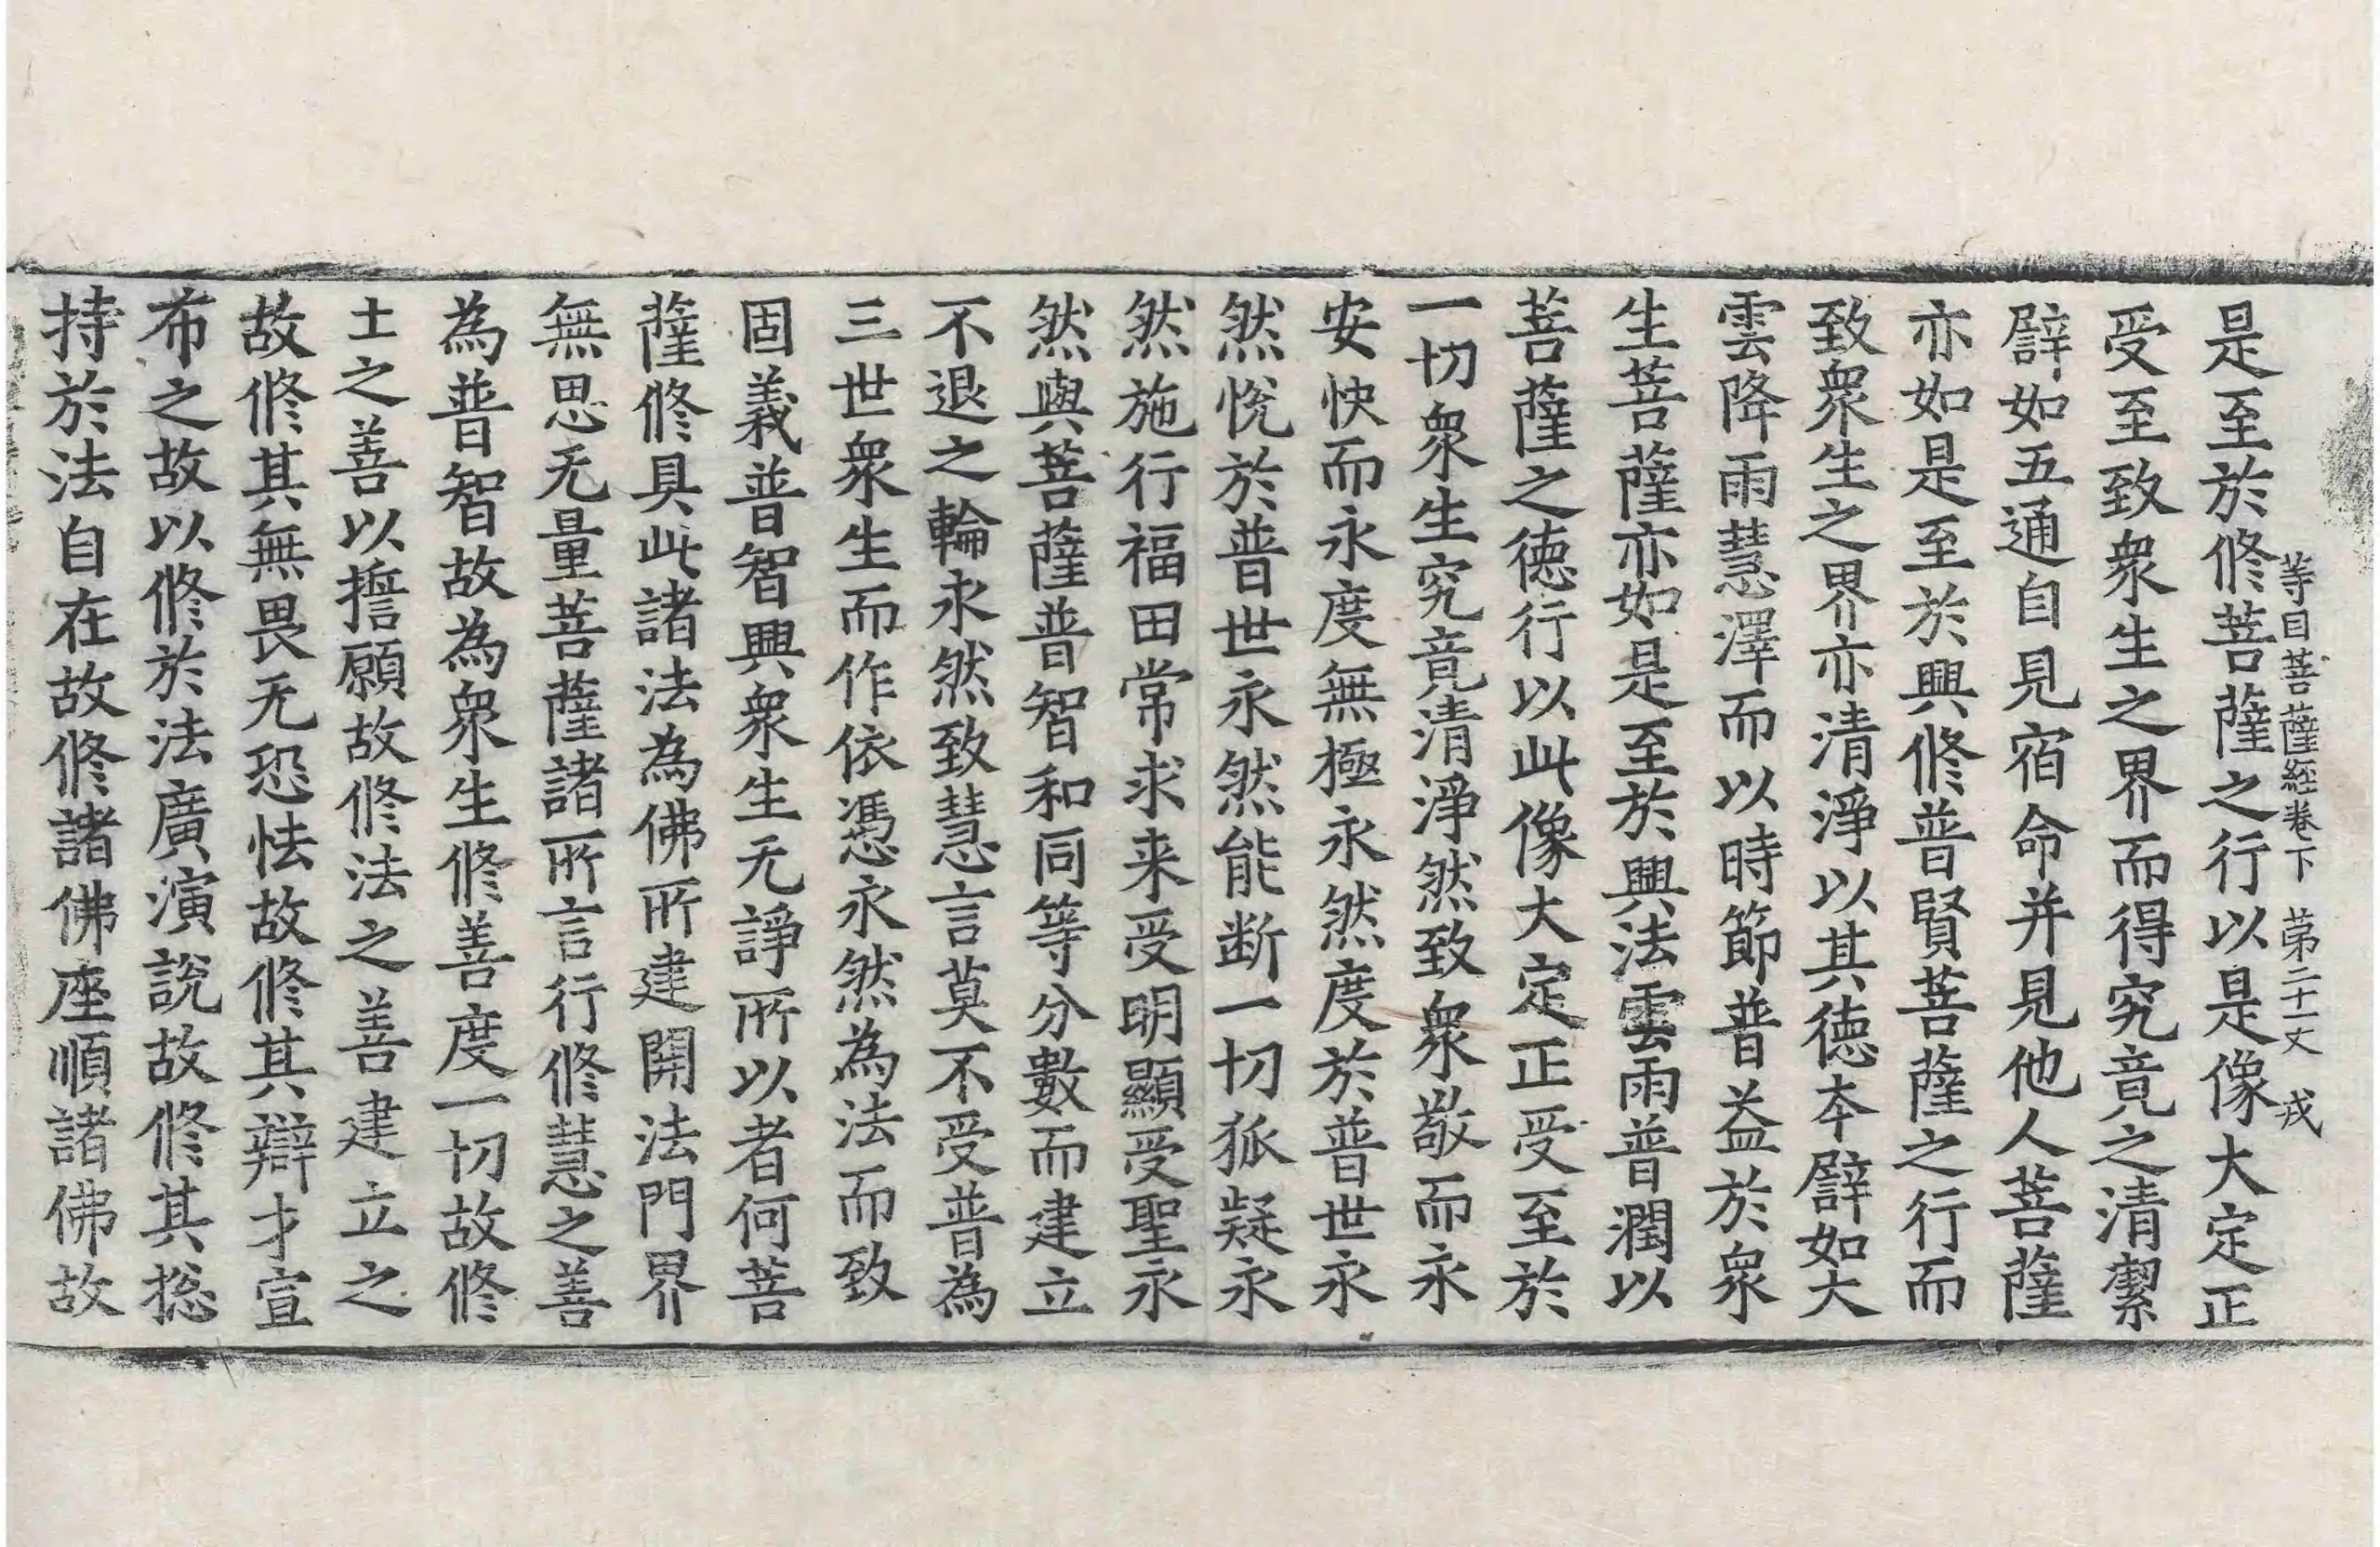 等目菩薩經卷下 苐二十一丈 戎
是至於修菩薩之行以是像大定正
受至致衆生之界而得究竟之清潔
譬如五通自見宿命并見他人菩薩
亦如是至於興修普賢菩薩之行而
致衆生之界亦清淨以其德本譬如大
雲降雨慧澤而以時節普益於衆
生菩薩亦如是至於興法雲雨普潤以
菩薩之德行以此像大定正受至於
一切衆生究竟清淨然致衆敬而永
安快而永度無極永然度於普世永
然恱於普世永然能断一切狐疑永
然施行福田常求来受明顯受聖永
然與菩薩普智和同等分數而建立
不退之輪永然致慧言莫不受普為
三世衆生而作依憑永然為法而致
固義普智興衆生无諍所以者何菩
薩修具此諸法為佛所建開法門界
無思无量菩薩諸所言行修慧之善
為普智故為衆生修善度一切故修
土之善以誓願故修法之善建立之
故修其無畏无恐怯故修其辯才宣
布之故以修於法廣演說故修其捴
持於法自在故修諸佛座順諸佛故